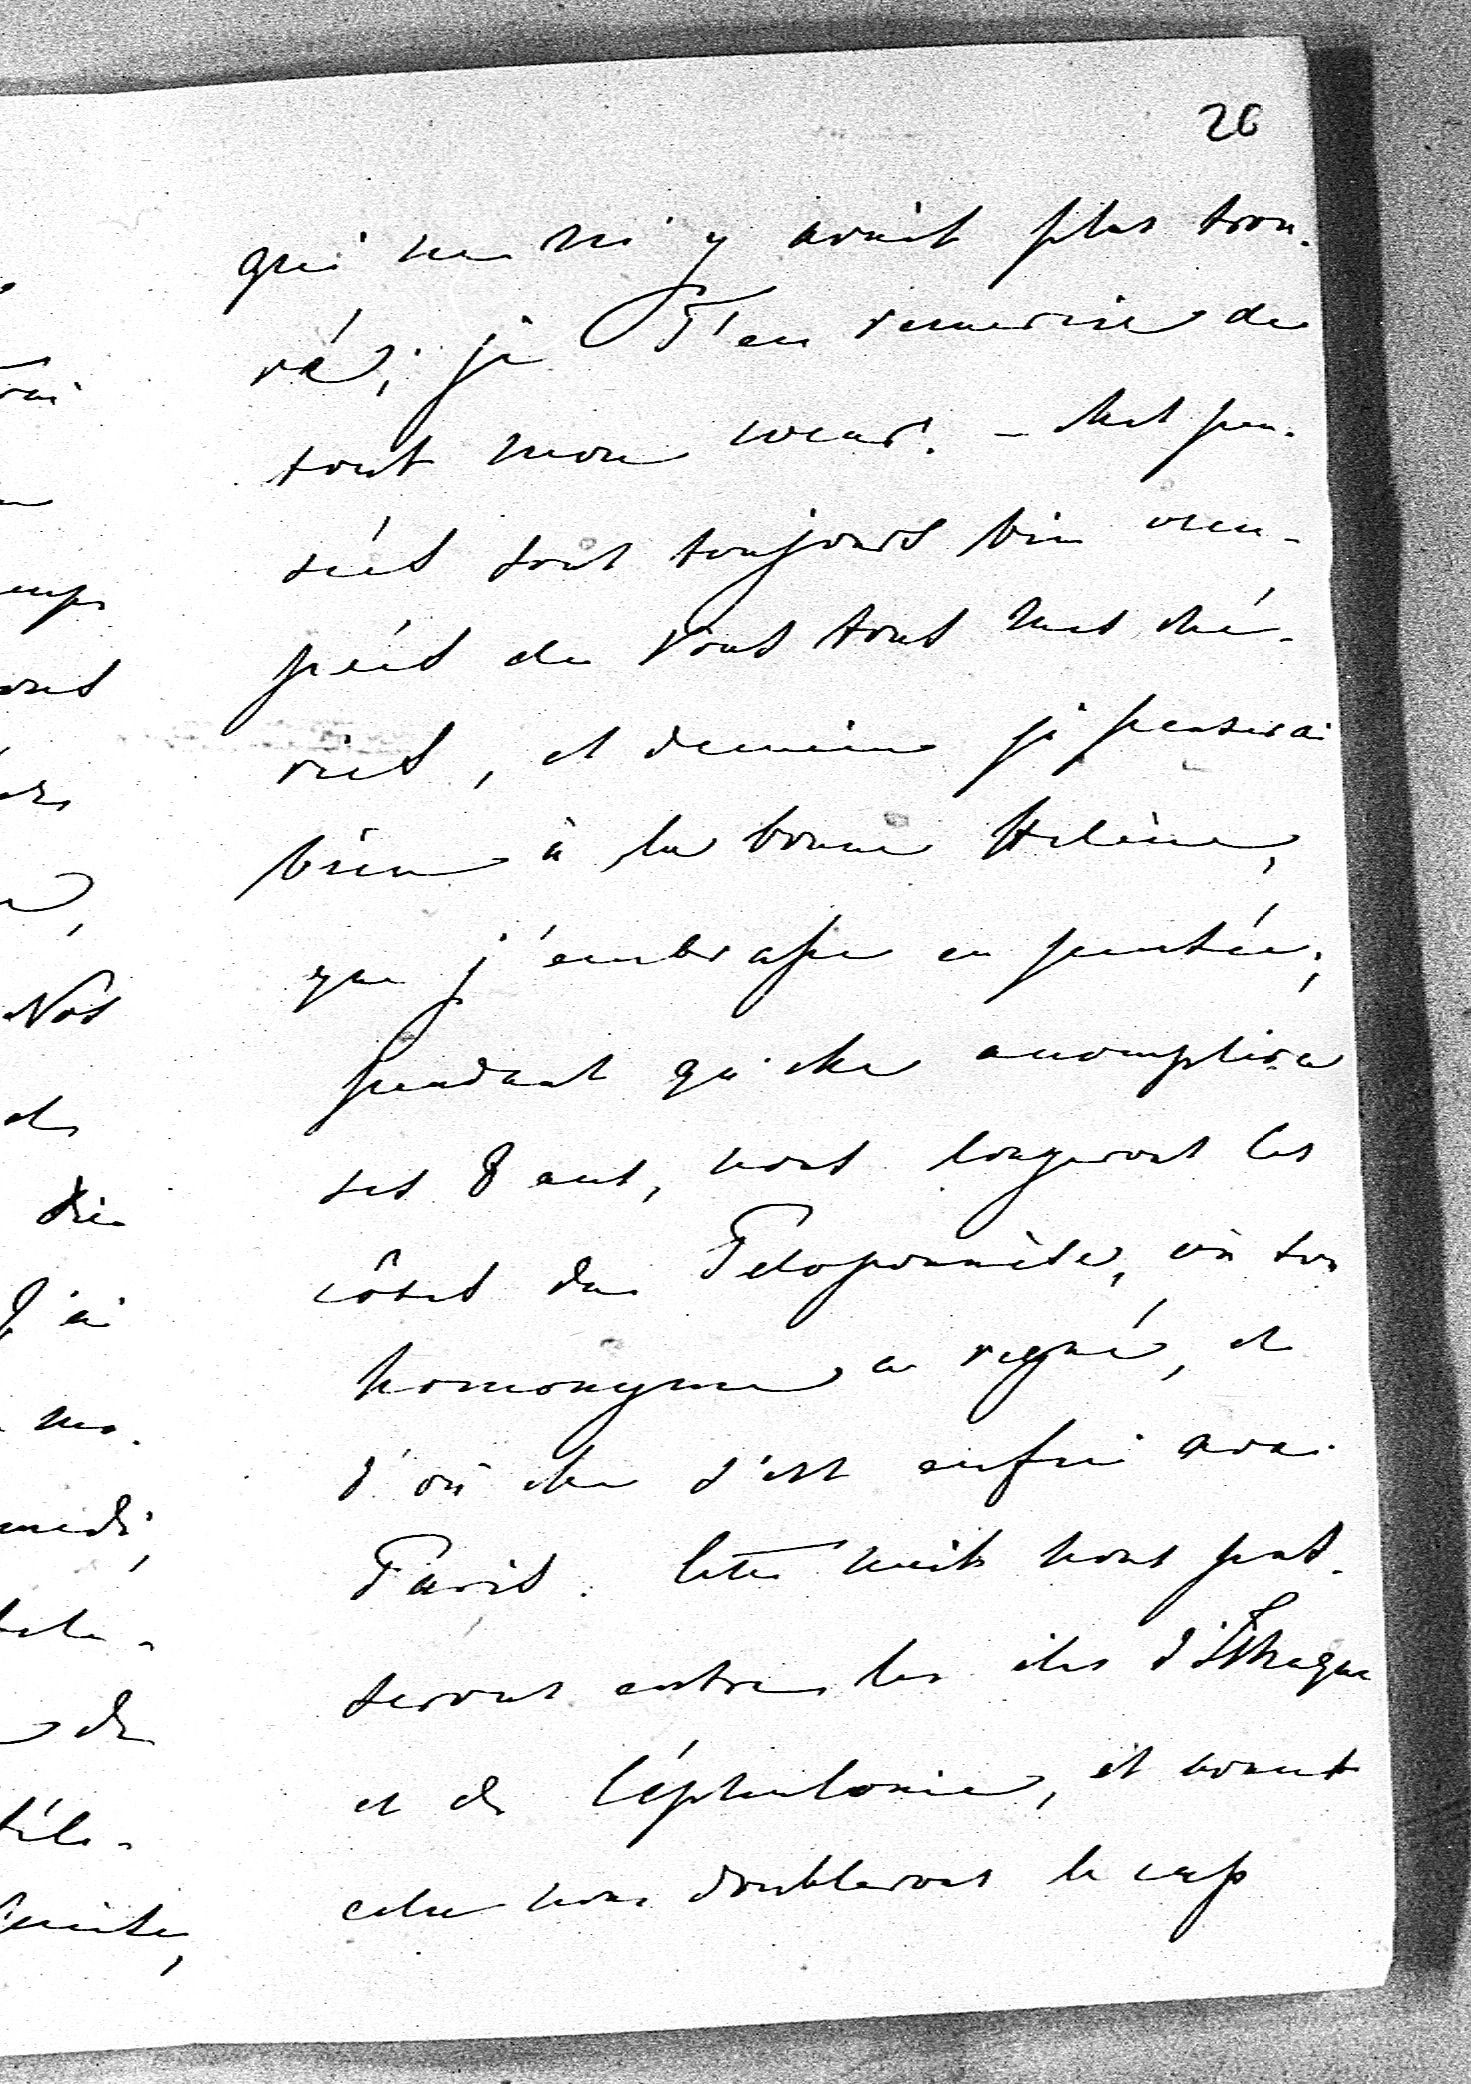 26
qui ne m'y avait plus trou-
vé; je T'en remercie de
tout mon coeur. – Mes pen-
sées sont toujours bien occu-
pées de Vous tous mes ché-
ries, et demain je penserai
bien à la bonne Helène,
que j'embrasse en pensée;
pendant qu'elle accomplira
ses 8 ans, nous longerons les
côtes du Peloponnèse, où son
homonyme a regné, et
d'où elle s'est enfui avec
Paris. Cette nuit nous pas-
serons entre les iles d'Ithaque
et de Céphalonie, et avant
cela nous doublerons le cap